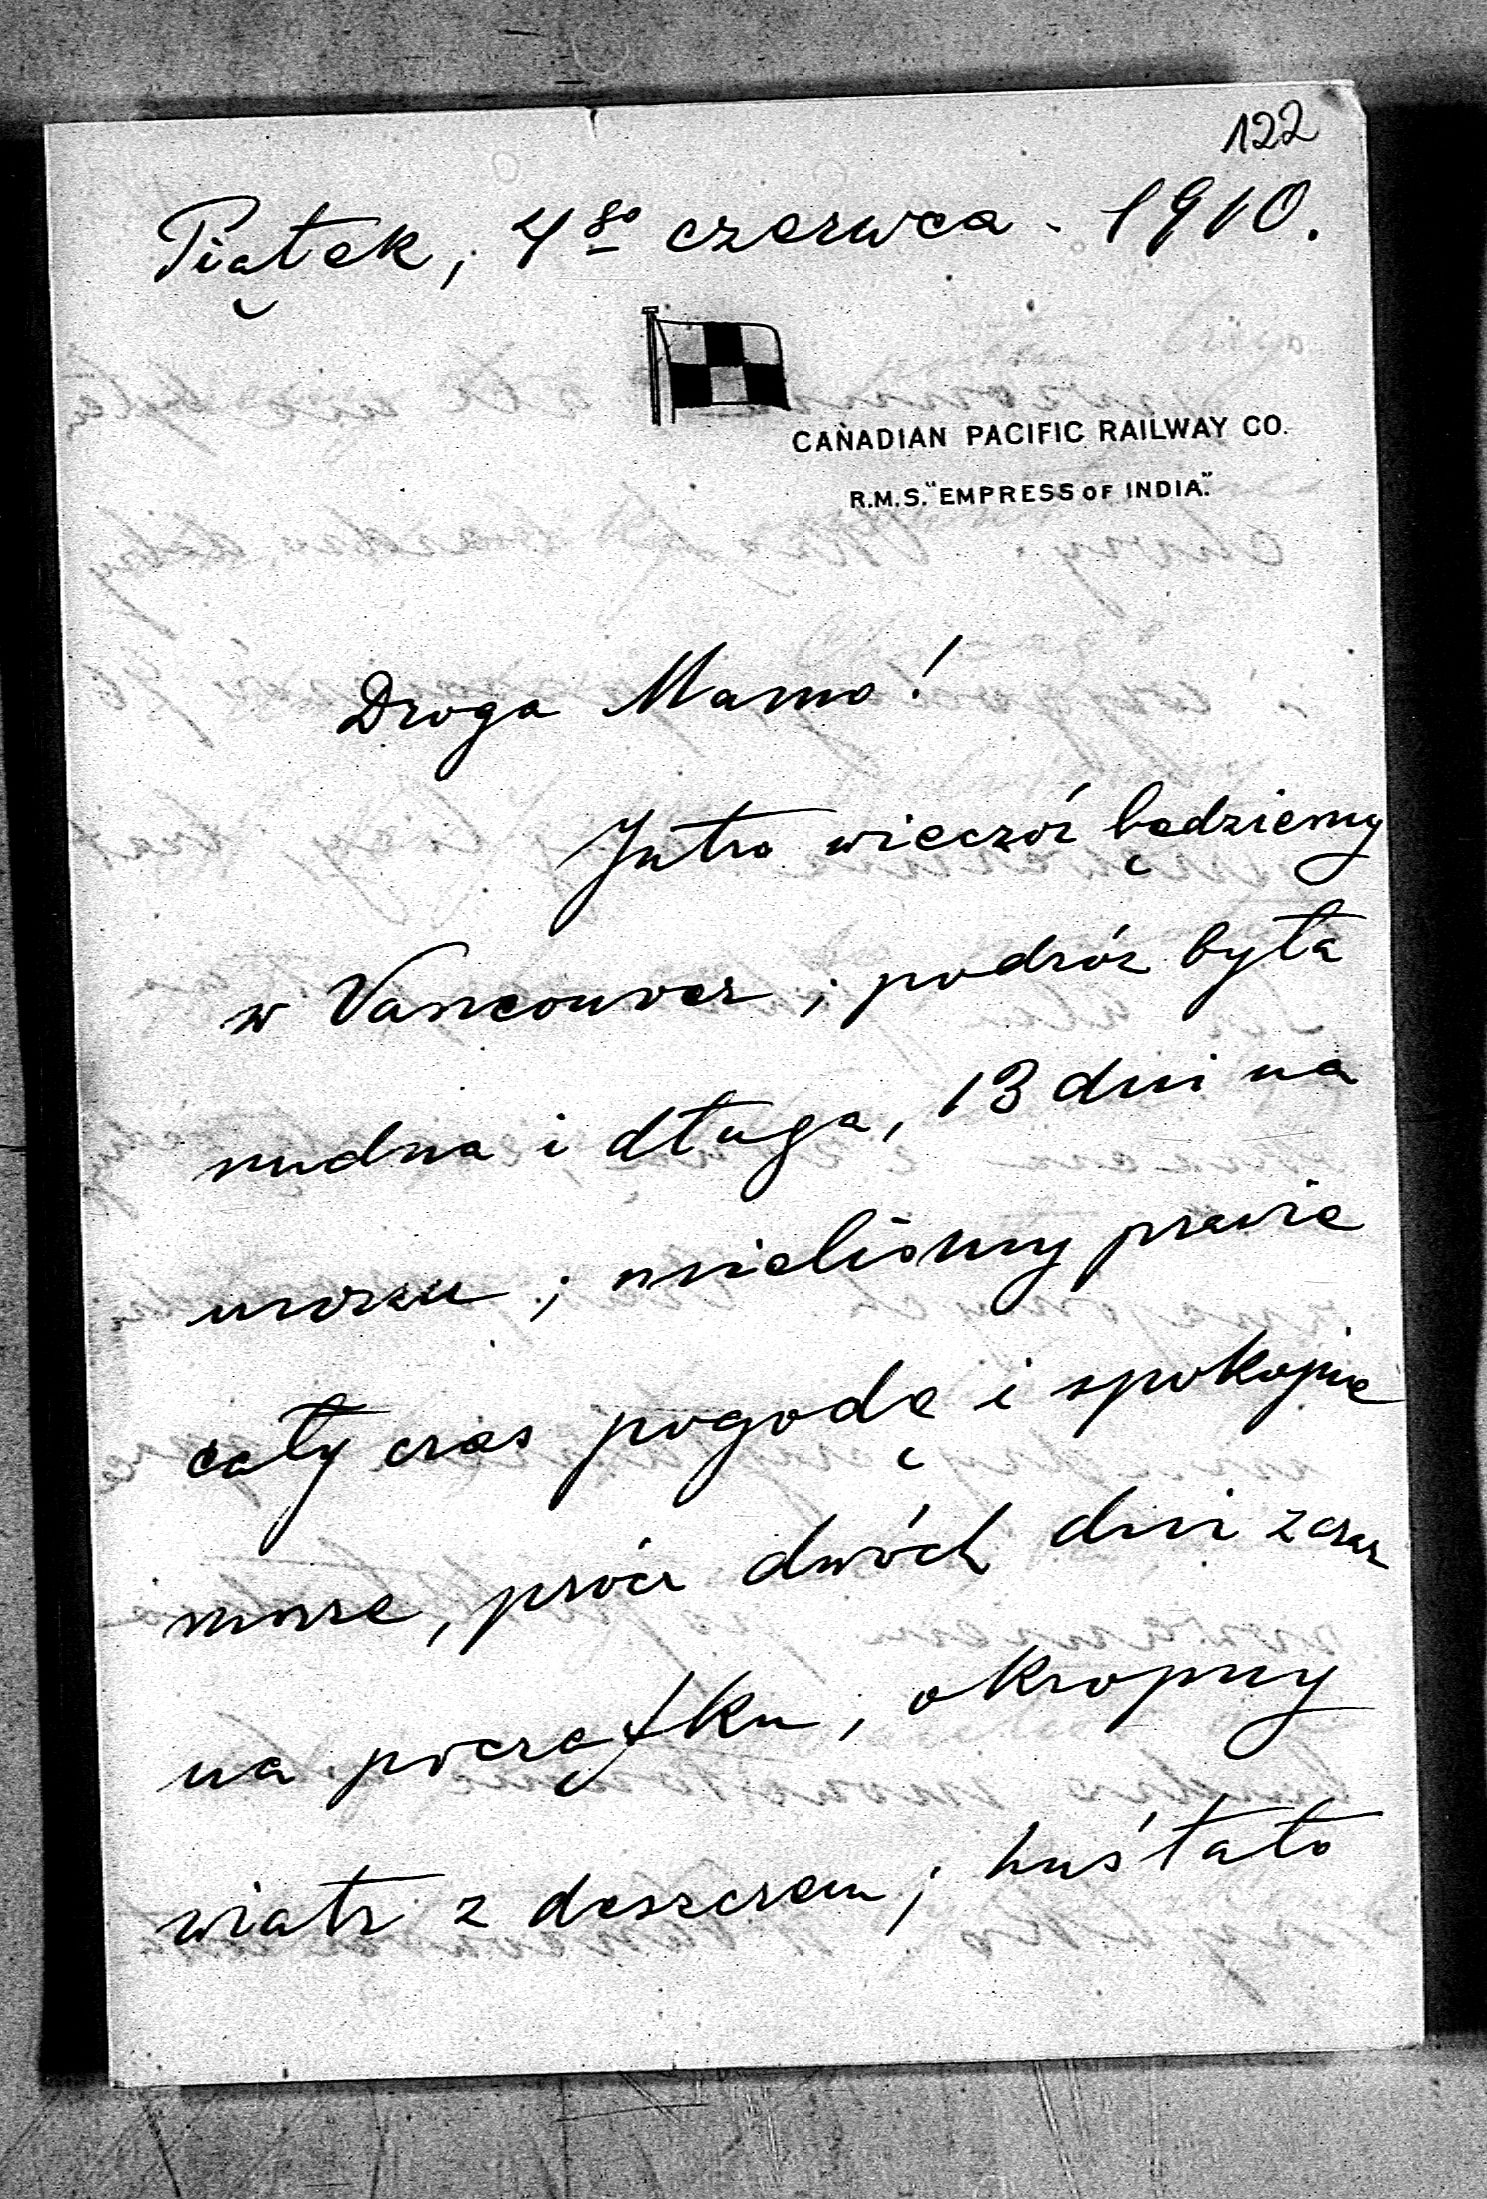 122
Piątek, 4go czerwca - 1910.
CANADIAN PACIFIC RAILWAY CO.
R.M.S. "EMPRESS OF INDIA."
Droga Mamo!
Jutro wieczór będziemy
w Vancouver; podróż była
nudna i długa, 13 dni na
morzu; mieliśmy prawie
cały czas pogodę i spokojne
morze, prócz dwóch dni zaraz
na początku, okropny
wiatr z deszczem; huśtało